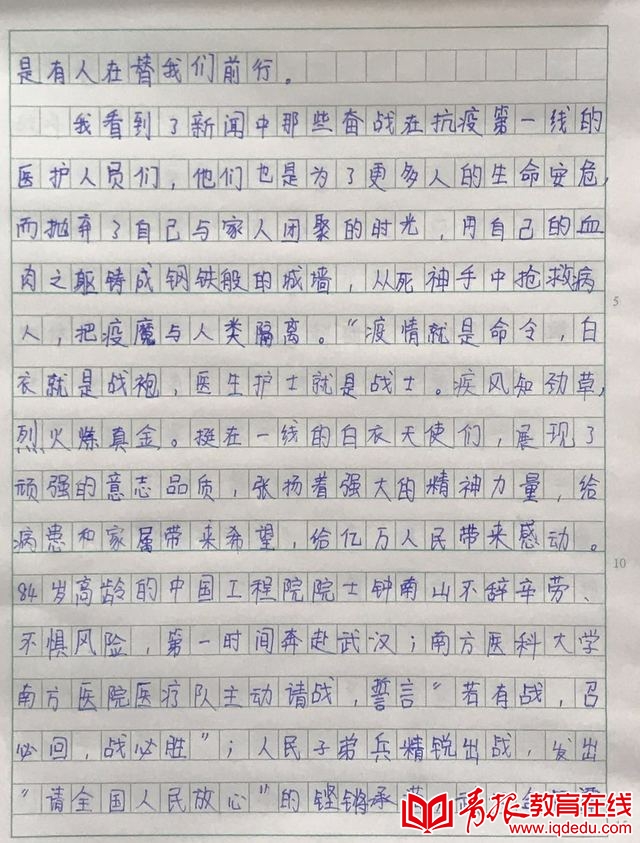 是有人在替我们前行。
我看到了新闻中那些奋战在抗疫第一线的
医护人员们，他们也是为了更多人的生命安危，
而抛弃了自己与家人团聚的时光，用自己的血
肉之躯铸成钢铁般的城墙，从死神手中抢救病
人，把疫魔与人类隔离。“疫情就是命令，白
衣就是战袍，医生护士就是战士。疾风知劲草，
烈火炼真金。挺在一线的白衣天使们，展现了
顽强的意志品质，张扬着强大的精神力量，给
病患和家属带来希望，给亿万人民带来感动。
84岁高龄的中国工程院院士钟南山不辞辛劳、
不惧风险，第一时间奔赴武汉；南方医科大学
南方医院医疗队主动请战，誓言“若有战，召
必回，战必胜”；人民子弟兵精锐出战，发出
“请全国人民放心”的铿锵承
5
10
青报教育在线
www.iqdedu.com